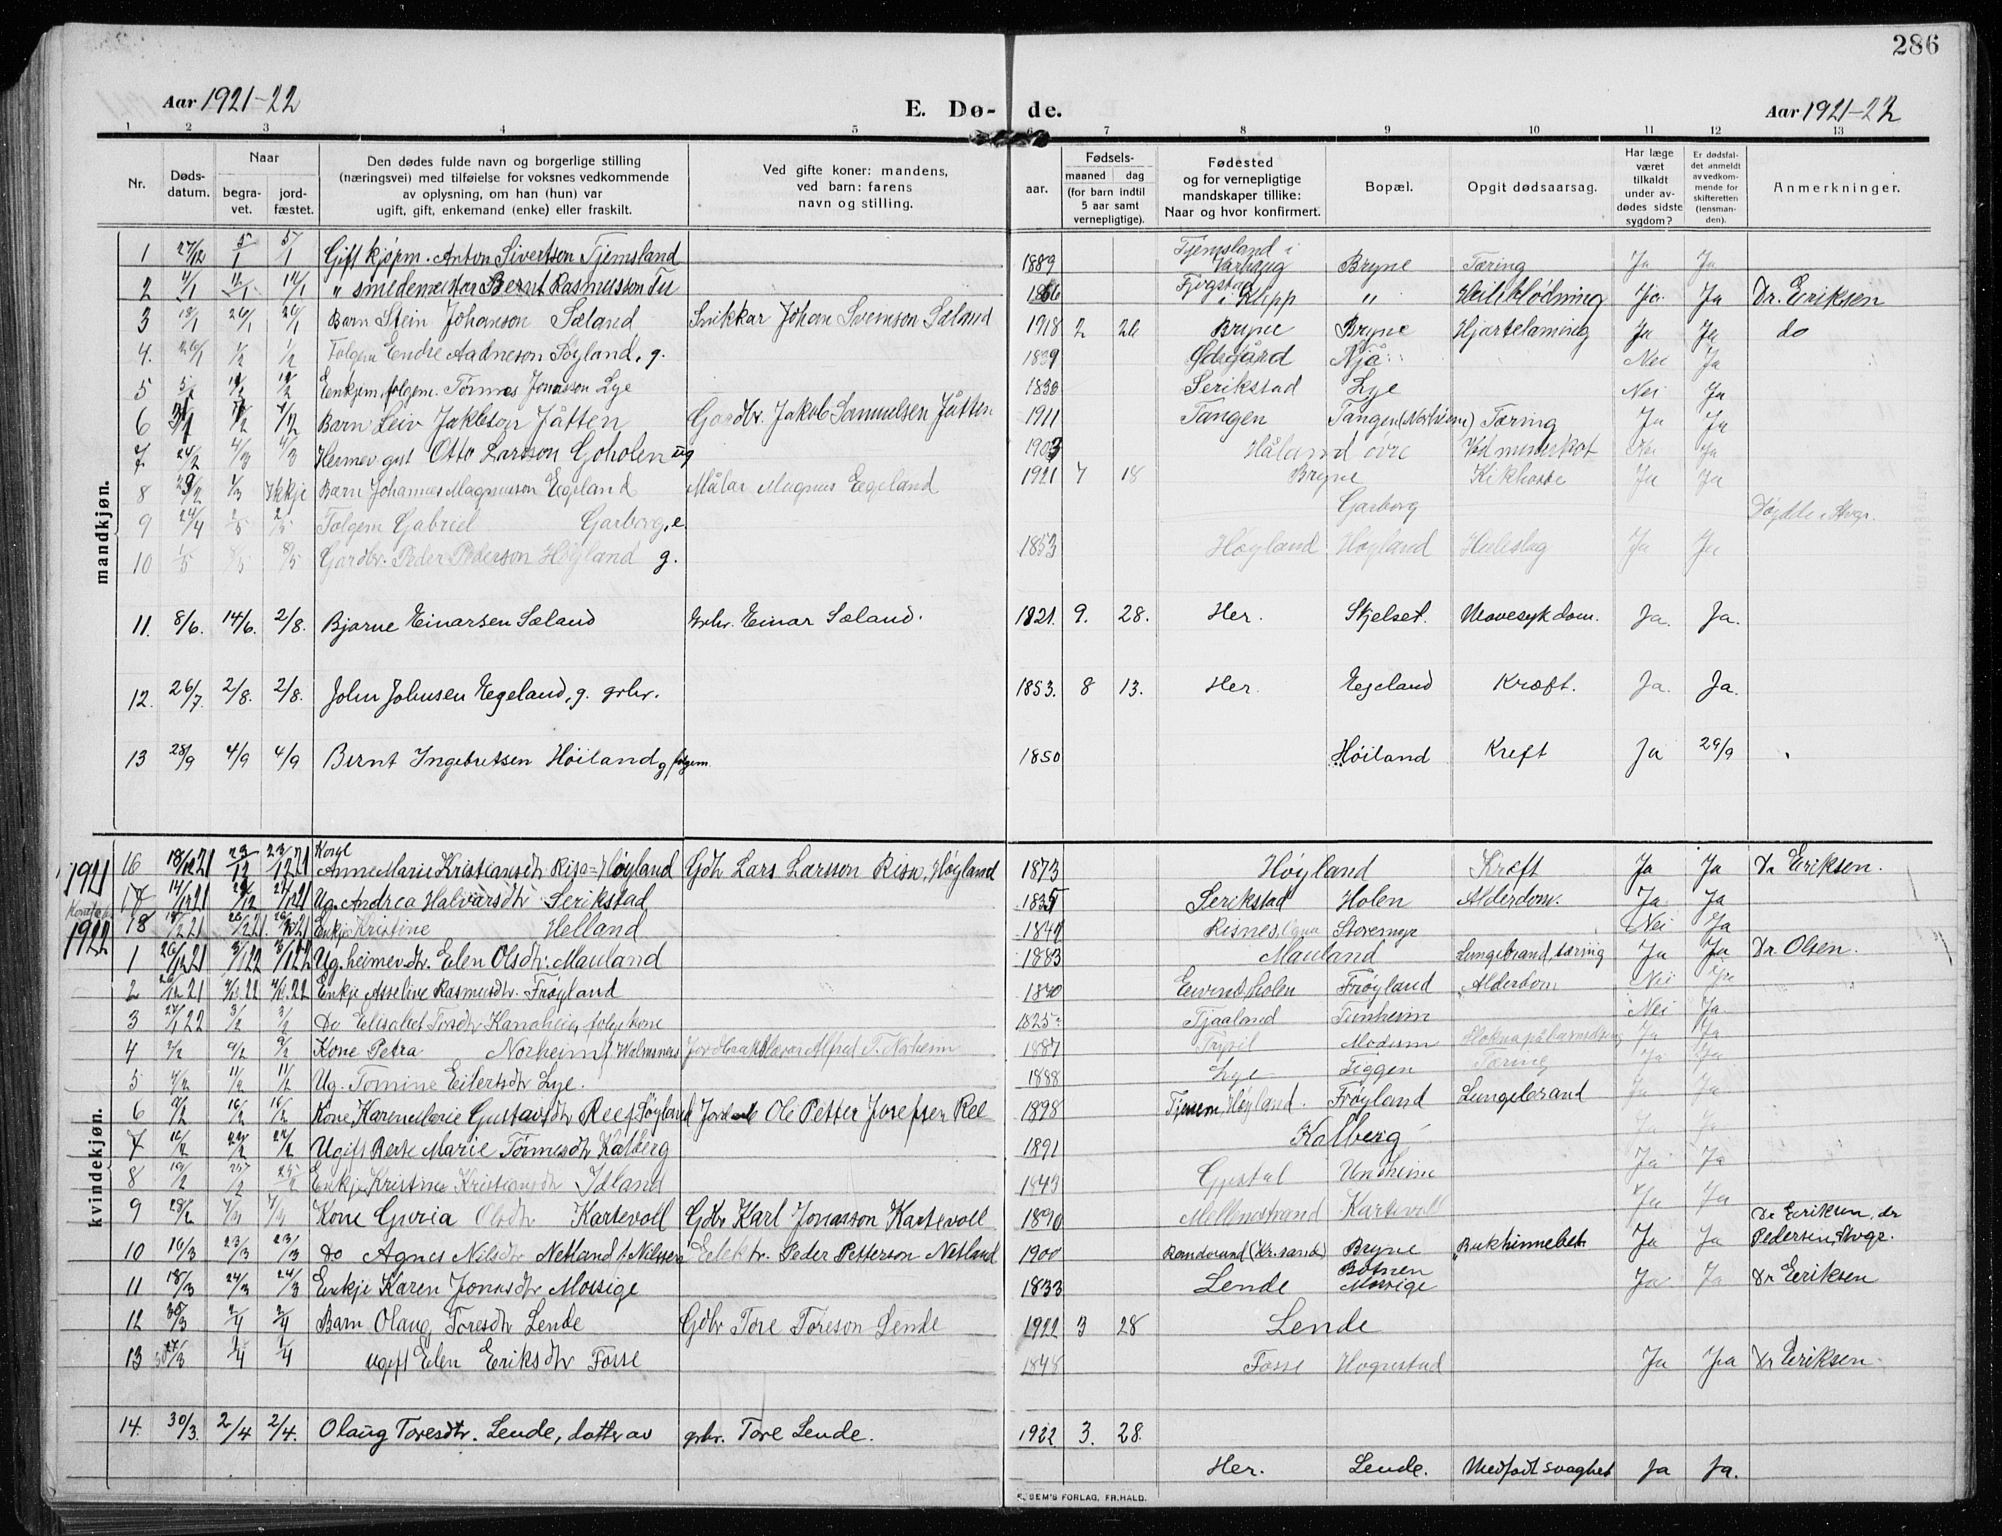 286
Aar 1921-22 E. Dø- de. Aar 1921-22
1 2 3 4 5 6 7 8 9 10 11 12 13
Nr. Døds-datum. Naar begra-vet. jord-fæstet. Den dødes fulde navn og borgerlige stilling (næringsvei) med tilføielse for voksnes vedkommende av oplysning, om han (hun) var ugift, gift, enkemand (enke) eller fraskilt. Ved gifte koner: mandens, ved barn: farens navn og stilling. aar. Fødsels- maaned dag (for barn indtil 5 aar samt vernepligtige). Fødested og for vernepligtige mandskaper tillike: Naar og hvor konfirmert. Bopæl. Opgit dødsaarsag. Har læge været tilkaldt under av-dødes sidste sygdom? Er dødsfal-det anmeldt av vedkom-mende for skifteretten (lensman-den). Anmerkninger.
mandkjøn.
1 27/12 5/1 5/1 Gift kjøpm. Anton Sivertson Tjemsland 1889 Tjemsland i Varhaug Bryne Tæring Ja Ja
2 4/1 12/1 12/1 " smedemester Bernt Rasmusson Tu 1866 i Klepp " Heileblødning Ja Ja Dr. Eriksen
3 18/1 26/1 26/1 Barn Stein Johanson Sæland Snikkar Johan Sveinson Sæland 1918 2 26 Bryne Bryne Hjartelaming Ja Ja do
4. 26/1 1/2 1/2 Folgem Endre Aadneson Søyland, g. 1839 Ødegård Njå Nei Ja
5 Enkjem, folgem. Tønnes Jonasson Lye 1838 Serikstad Lye Nei Ja
6 31/1 7/2 7/2 Barn Leiv Jakobson Jåtten Gardbr. Jakob Samuelsen Jåtten 1911 Tangen Tangen (Norheim) Tæring Ja Ja
7 24/2 4/3 4/3 Heimev. gut Otto Larsson Goholen ug 1903 Håland øvre Ved Nei Ja
8 4/3 Ikkje Barn Johannes Magnusson Eegeland Målar Magnus Eegeland 1921 7 18 Bryne Kikhoste Ja Ja
9 24/4 2/5 2/5 Folgem Gabriel Garborg, e. Garborg Døydde i Stvgr.
10 1/5 8/5 8/5 Gardbr. Peder Pederson Høyland g. 1853 Høyland Høyland Heileslag Ja Ja
11. 8/6. 14/6. 2/8. Bjarne Einarsen Sæland Grbr. Einar Sæland. 1921. 9. 28. Her. Skjelset. Mavesykdom. Ja. Ja.
12. 26/7. 2/8. 2/8. John Johnsen Egeland, g. grbr. 1853. 8 13. Her. Egeland Kræft. Ja. Ja.
13 28/9 4/9 4/9 Bernt Ingebretsen Høiland g folgem 1850 Høiland Kreft Ja 29/9
kvindekjøn.
1921 16 18/12 21 23/12 23/12 21 Kone Anne Marie Kristiansdtr Risa = Høyland Gdb Lars Larsson Risa, Høyland 1873 Høyland Kræft Ja Ja Dr Eriksen.
17 14/12 21 21/12 21/12 21 Ug. Andrea Halvarsdtr Serikstad 1835 Serikstad Holen Alderdom. Ja Ja
1922 18 Enkje Kristine Helland 1847 Risnes, Storemyr Nei Ja
1 26/12 21 3/1 22 3/1 22 Ug. heimev. dtr. Elen Olsdtr. Mauland 1883 Mauland Lungebrand, tæring Ja Ja Dr. Olsen.
2 4/1 22 4/1 22 Enkje Asseline Rasmusdtr. Frøyland 1840 Frøyland Alderdom Nei Ja
3 27/1 22 3/2 3/2 Do Elisabet Torsdtr Kanaheia, folgekone 1825 Tjaaland Tunheim Nei Ja
4 2/2 9/2 9/2 Kone Petra Norheim f. Jordbrukar Alfred T. Norheim 1887 Trysil Modum Ja Ja
5 4/2 11/2 11/2 Ug. Tomine Eilertsdtr Lye. 1888 Lye Tiggen Tæring Ja Ja
6 9/2 16/2 16/2 Kone Karen Marie Gustavsdtr Ree f Søyland Ole Petter Josefsen Ree 1898 Høyland Frøyland Lungebrand Ja Ja
7 22/2 22/2 Ugift Berte Marie Tønnesdtr Kalberg 1891 Kalberg Ja Ja
8 Enkje Kristine Kristiansdtr Idland 1843 Undheim Ja Ja
9 28/2 7/3 7/3 Kone Guria Olsdtr Kartevoll Gdbr Karl Jonasson Kartevoll 1890 Mellomstrand Kartevoll Ja Ja
10 16/3 23/3 23/3 Do Agnes Nilsdtr Netland f. Nilssen Elektr. Peder Petterson Netland 1900 Randesund (Kr.sand) Bryne Bukhinnebet. Ja Ja Dr Eriksen, dr Pedersen, Stvgr.
11 18/3 24/3 24/3 Enkje Karen Jonasdtr Mossige 1833 Lende Botnen Mossige Ja Ja Dr Eriksen
12 30/3 2/4 2/4 Barn Olaug Toresdtr Lende Gdbr Tore Toreson Lende 1922 3 28 Lende
13 27/3 1/4 1/4 ugift Elen Eriksdtr Fosse 1848 Fosse Hognestad Ja Ja Dr Eriksen.
14. 30/3. 2/4 2/4. Olaug Toresdtr. Lende, datter av grbr. Tore Lende. 1922 3. 28.
Her. Lende. Medfødt svaghet Ja Ja.
E. SEM'S FORLAG, FR.HALD.